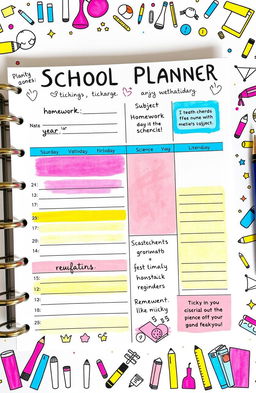 Planty
goney:
SCHOOL PLANNER
tichings, tickarge
anjy wethatidary
homework:
Note
year
Subject
Homework
day is the
schercie!
I teeth chords
free nune with
melie's cobject.
Sourday Vatinday Firlodiay
Science Vay
Literiday
24:
13:
12:
25
11:
10:
reuufatins.
15:
12:
12:
25:
Scastechents
gronwatb
+
fest timaly
honstack
reginders
Rememwent.
like micky
Ticky in you
ciscrial out the
pierice off your
gond feekyou!